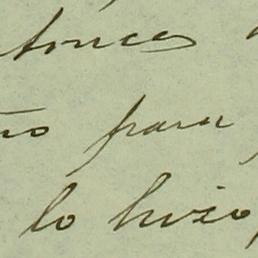 tonces
no para
lo hizo,